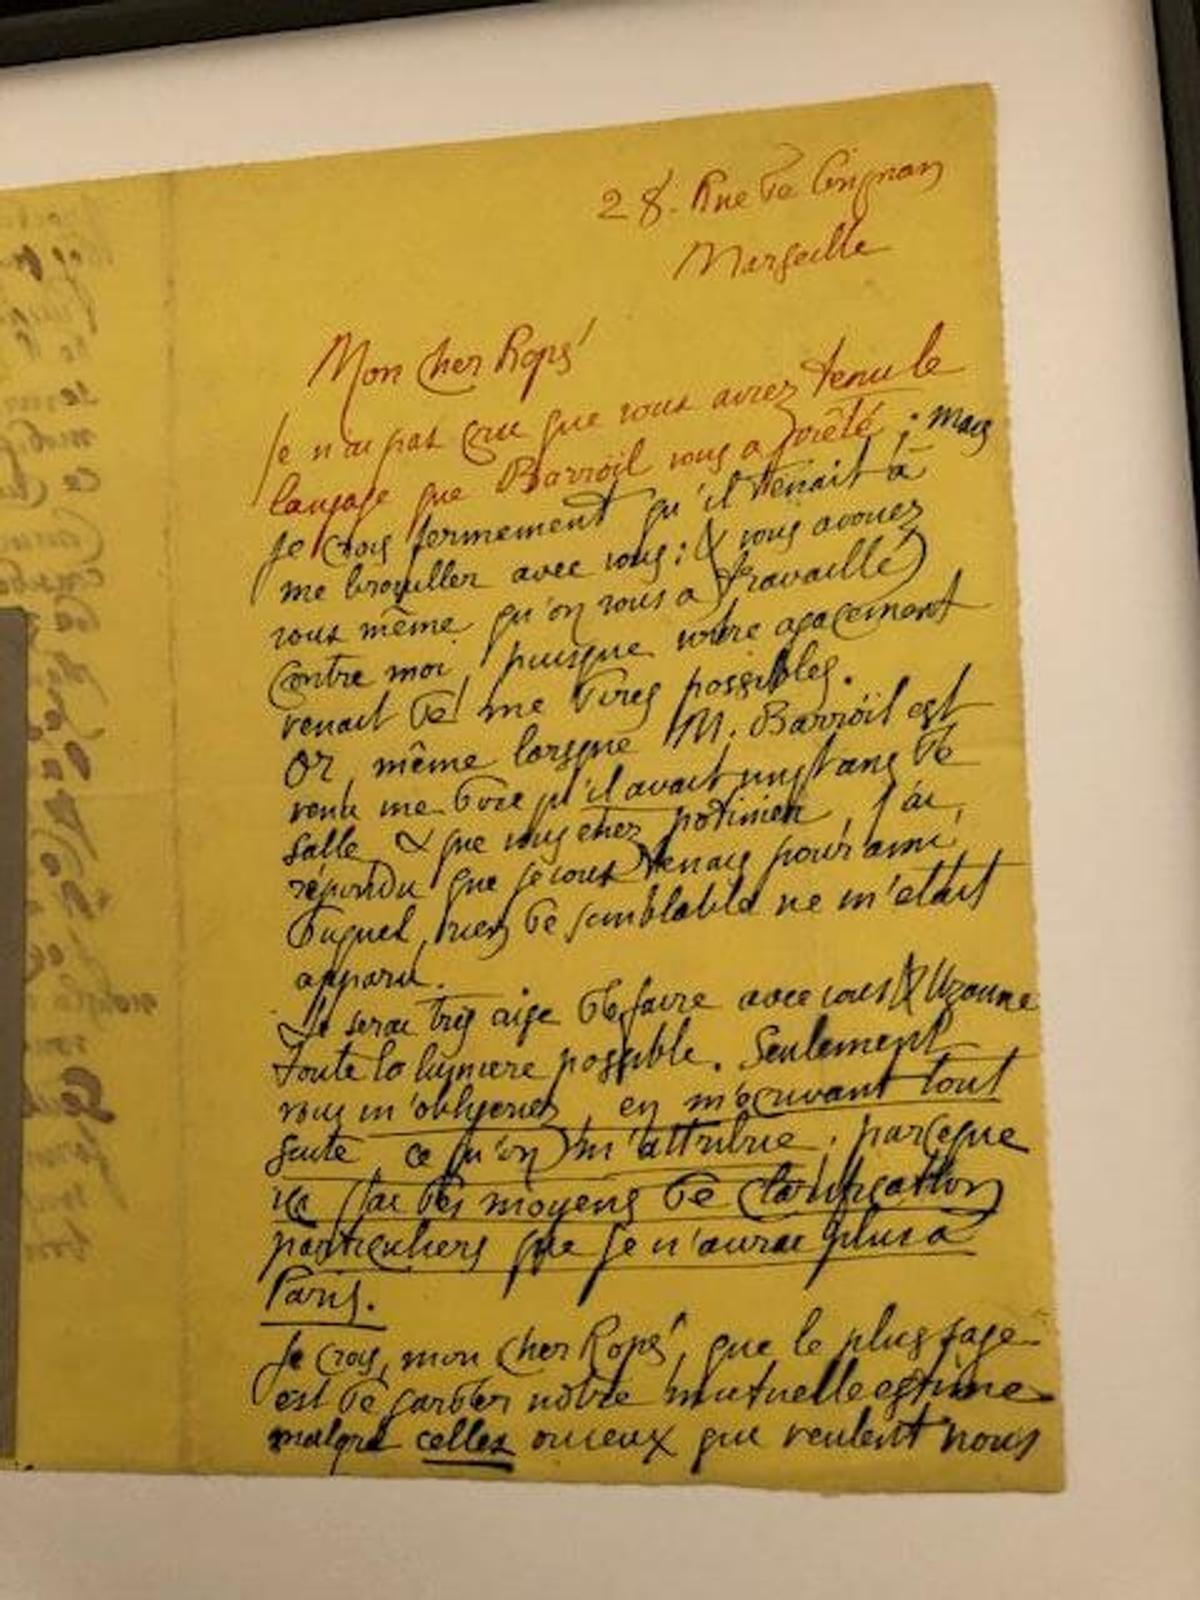 28. Rue de Grignan
Marseille
Mon cher Rops!
Je n'ai pas cru que vous aviez tenu le
langage que Barroil vous a prêté ; mais
je crois fermement qu'il tenait à
me brouiller avec vous : (& vous avouez
vous même qu'on vous a travaillé)
contre moi, puisque votre agacement
venait de me dires possibles.
Or, même lorsque M. Barroil est
venu me dire qu'il avait
salle & que vous étiez potinier, j'ai
répondu que je vous tenais pour ami
duquel rien de semblable ne m'était
apparu.
Je serai très aise de faire avec vous & Uzanne
toute la lumière possible. Seulement
vous m'obligeriez, en m'écrivant tout
suite ce qu'on m'attribue ; parceque
ici j'ai des moyens de clarification
particuliers que je n'aurai plus à
Paris.
Je crois, mon cher Rops, que le plus sage
est de garder notre mutuelle estime
malgré celles ou ceux qui veulent nous